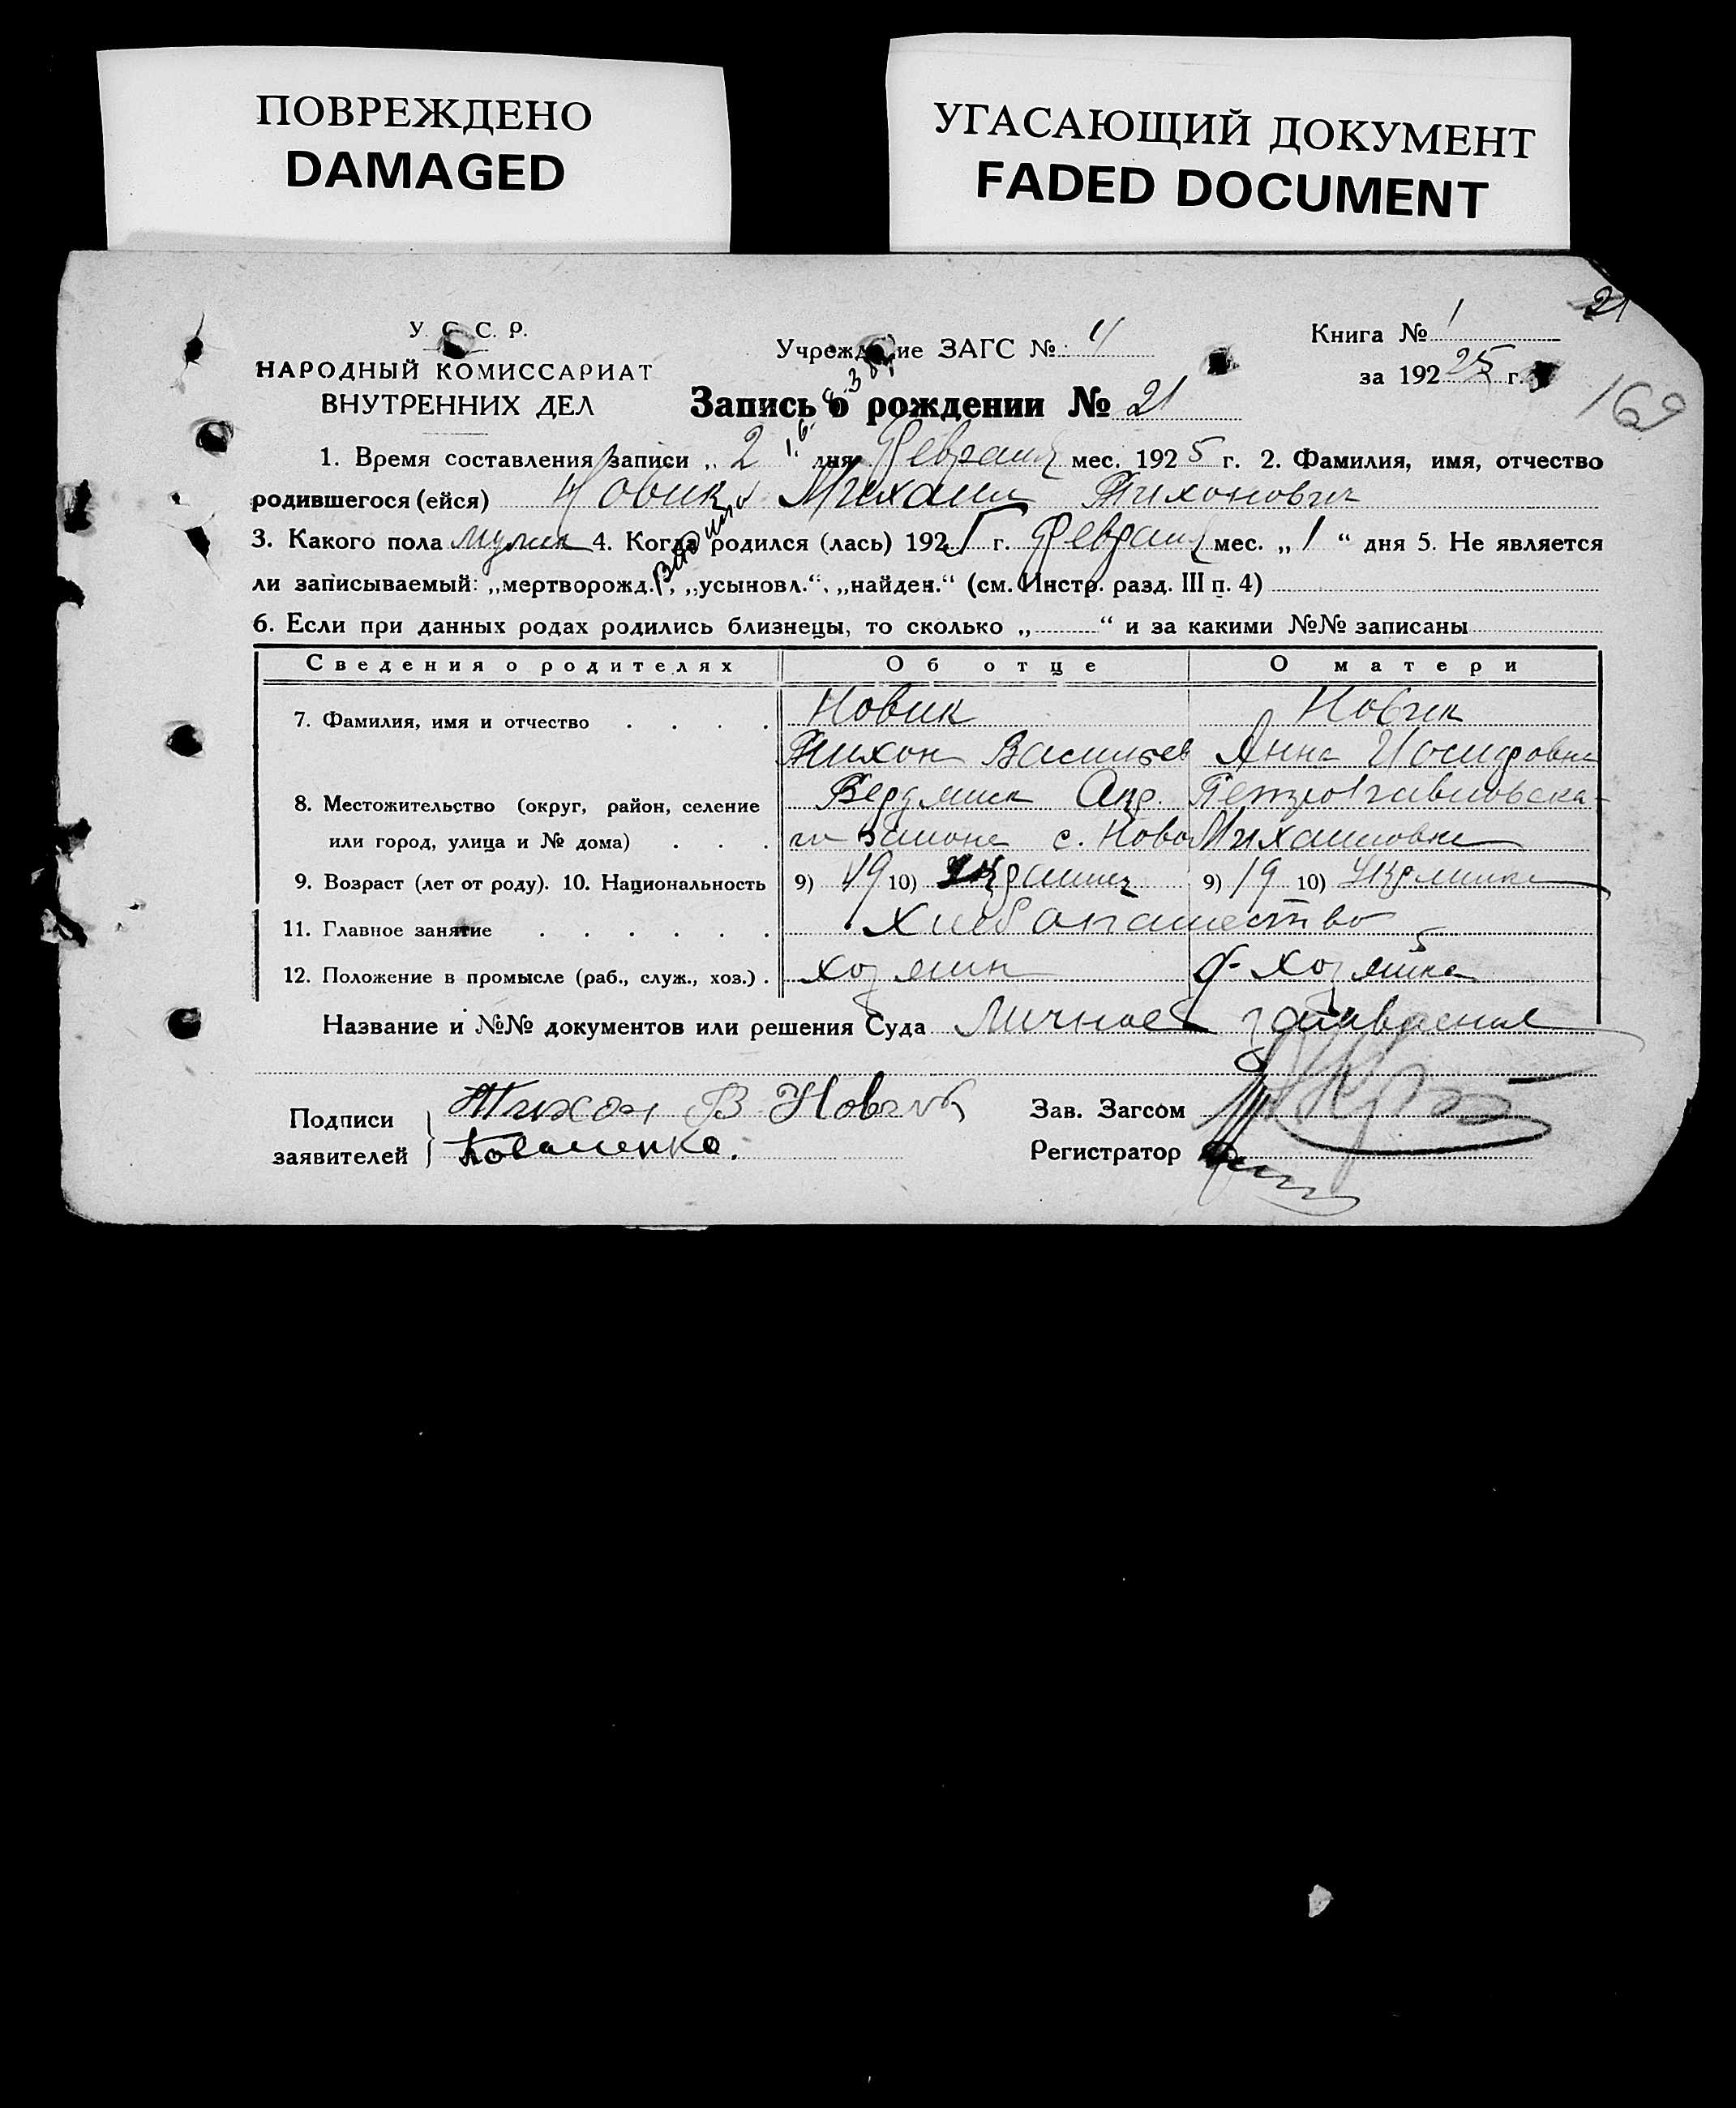 ПОВРЕЖДЕНО
DAMAGED
УГАСАЮЩИЙ ДОКУМЕНТ
FADED DOCUMENT
21
У. С. С. Р.
НАРОДНЫЙ КОМИССАРИАТ
ВНУТРЕННИХ ДЕЛ
Учреждение ЗАГС № 4
Книга № 1
за 192 25 г.
169
Запись о рождении № 21
1. Время составления записи „ 2 “ дня Февраля мес. 192 5 г. 2. Фамилия, имя, отчество
родившегося (ейся) Новик Михаил Тихонович
3. Какого пола мужск 4. Когда родился (лась) 192 5 г. Февраля мес. „ 1 “ дня 5. Не является
ли записываемый: „мертворожд.“, „усыновл.“, „найден.“ (см. Инстр. разд. III п. 4)
6. Если при данных родах родились близнецы, то сколько „ “ и за какими №№ записаны
Сведения о родителях Об отце О матери
7. Фамилия, имя и отчество Новик Новик
Тихон Васильев Анна Иосифовна
8. Местожительство (округ, район, селение Бердянск Окр.
или город, улица и № дома) го района с. Ново Михайловка
9. Возраст (лет от роду). 10. Национальность 9) 19 10) Украинец 9) 19 10) Украинка
11. Главное занятие Хлебопашество
12. Положение в промысле (раб., служ., хоз.) хозяин хозяйка
Название и №№ документов или решения Суда Личное заявление
Подписи заявителей Тихон В Новик
Коваленко.
Зав. Загсом
Регистратор